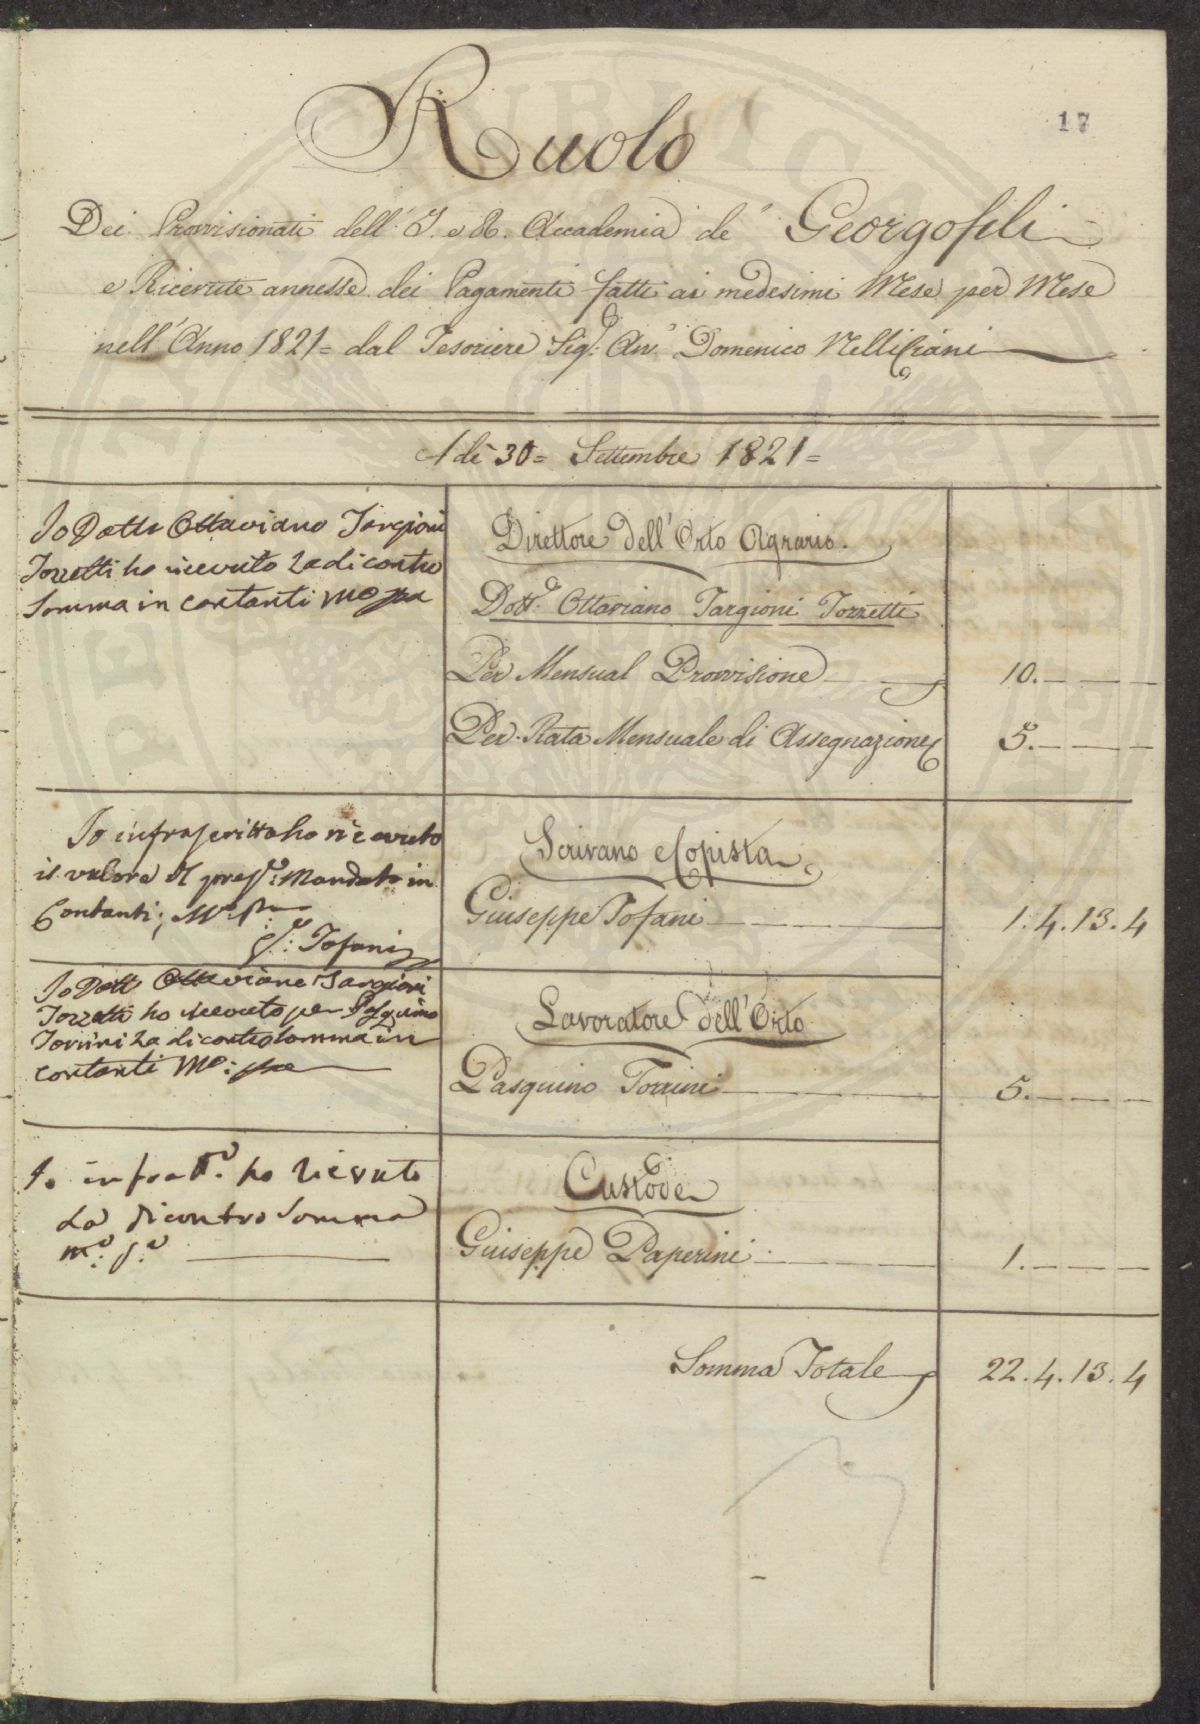 17
Ruolo
Dei Provvisionati dell' I. e R. Accademia de' Georgofili
e Ricevute annesse dei Pagamenti fatti ai medesimi Mese per Mese
nell' Anno 1821 = dal Tesoriere Sigr. Avo Domenico Nelli Ciani
A dì 30 = Settembre 1821 =
Io Dotte Ottaviano Targioni
Tozzetti ho ricevuto la di contro
Somma in contanti Mo pra
Direttore dell' Orto Agrario.
Dotte. Ottaviano Targioni Tozzetti
Per Mensual Provvisione 10. — — —
Per Rata Mensuale di Assegnazione 5. — — —
Io infrascritto ho riceuto
il valore del presto: Mandato in
Contanti; Mo: pra
Go: Tofani
Scrivano e Copista
Giuseppe Tofani 1. 4. 13. 4
Io Dotte Ottaviano Targioni
Tozzetti ho riceuto per Pasquino
Torrini la di contro somma in
contanti Mo: pra
Lavoratore dell' Orto
Pasquino Torrini 5. — — —
Io infratto. ho ricevuto
La di contro Somma
mo: po:
Custode
Giuseppe Paperini 1. — — —
Somma Totale 22. 4. 13. 4